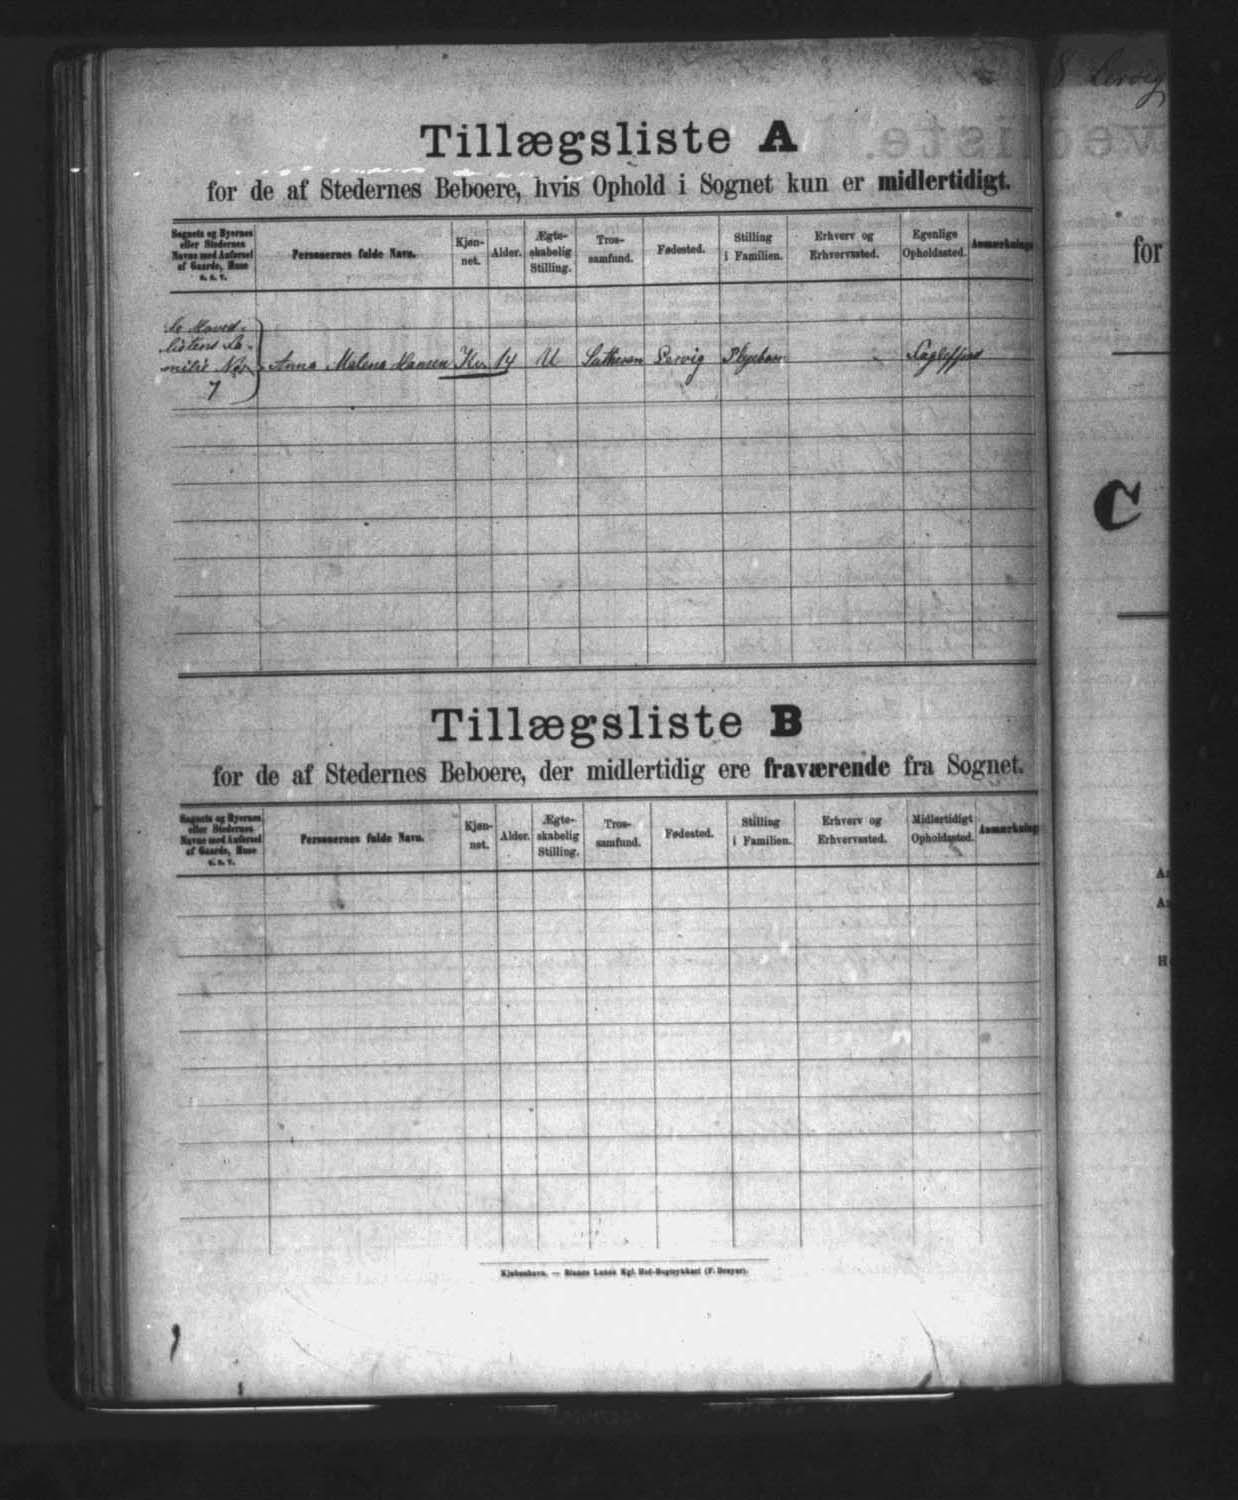 8 Lervig
Tillægsliste A
for de af Stedernes Beboere, hvis Ophold i Sognet kun er midlertidigt.
Sognets og Byernes
eller Stedernes
Navne med Anførsel
af Gaarde, Huse
o. s. v.
Personernes fulde Navn.
Kjøn-
net.
Alder.
Ægte-
skabelig
Stilling.
Tros-
samfund.
Fødested.
Stilling
i Familien.
Erhverv og
Erhvervssted.
Egenlige
Opholdssted.
Anmærkning
Se Hoved-
listens Fa-
milie No
7
Anna Malena Hansen Kv. 14 U Lutheran Lervig Plejebarn Fuglefjord
for
C
Tillægsliste B
for de af Stedernes Beboere, der midlertidig ere fraværende fra Sognet.
Sognets og Byernes
eller Stedernes
Navne med Anførsel
af Gaarde, Huse
o. s. v.
Personernes fulde Navn.
Kjøn-
net.
Alder.
Ægte-
skabelig
Stilling.
Tros-
samfund.
Fødested.
Stilling
i Familien.
Erhverv og
Erhvervssted.
Midlertidigt
Opholdssted.
Anmærkning
Kjøbenhavn. — Bianco Lunos Kgl. Hof-Bogtrykkeri (F. Dreyer).